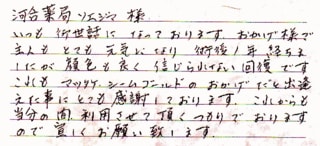 河合薬局ソエジマ 様
いつも御世話になっております。おかげ様で
主人もとても元気になり 術後1年経ちま
したが顔色も良く信じられない回復です
これも マッケィシームゴールドのおかげだと出逢
えた事にとても感謝しております。これからも
当分の間 利用させて頂くつもりでおります
ので宜しくお願い致します。